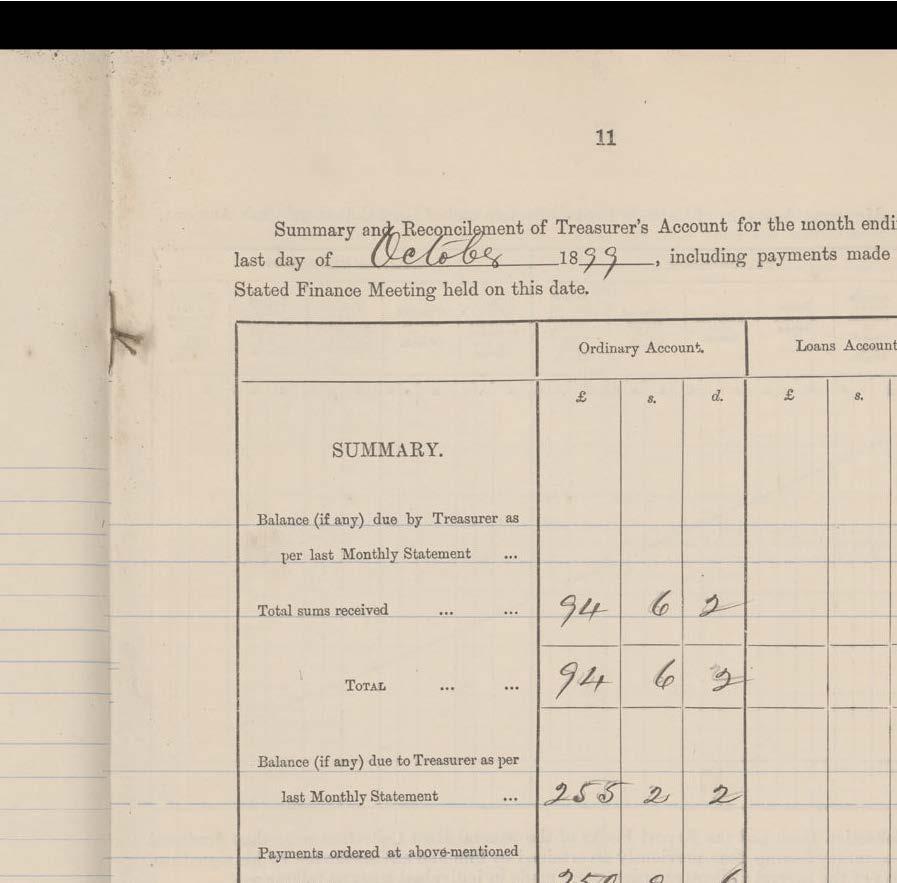 11
Summary and Reconcilement of Treasurer's Account for the month endi
last day of October 1899, including payments made
Stated Finance Meeting held on this date.
Ordinary Account. Loans Account
£ s. d. £ s.
SUMMARY.
Balance (if any) due by Treasurer as
per last Monthly Statement ...
Total sums received ... ... 94 6 2
TOTAL ... ... 94 6 2
Balance (if any) due to Treasurer as per
last Monthly Statement ... 255 2 2
Payments ordered at above-mentioned